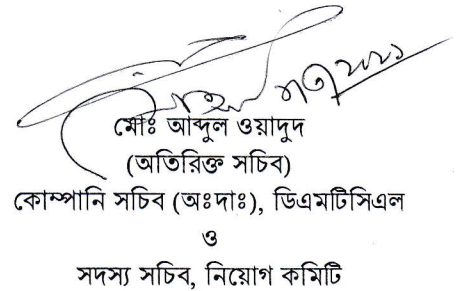 মোঃ আব্দুল ওয়াদুদ
(অতিরিক্ত সচিব)
কোম্পানি সচিব (অঃদাঃ), ডিএমটিসিএল
ও
সদস্য সচিব, নিয়োগ কমিটি